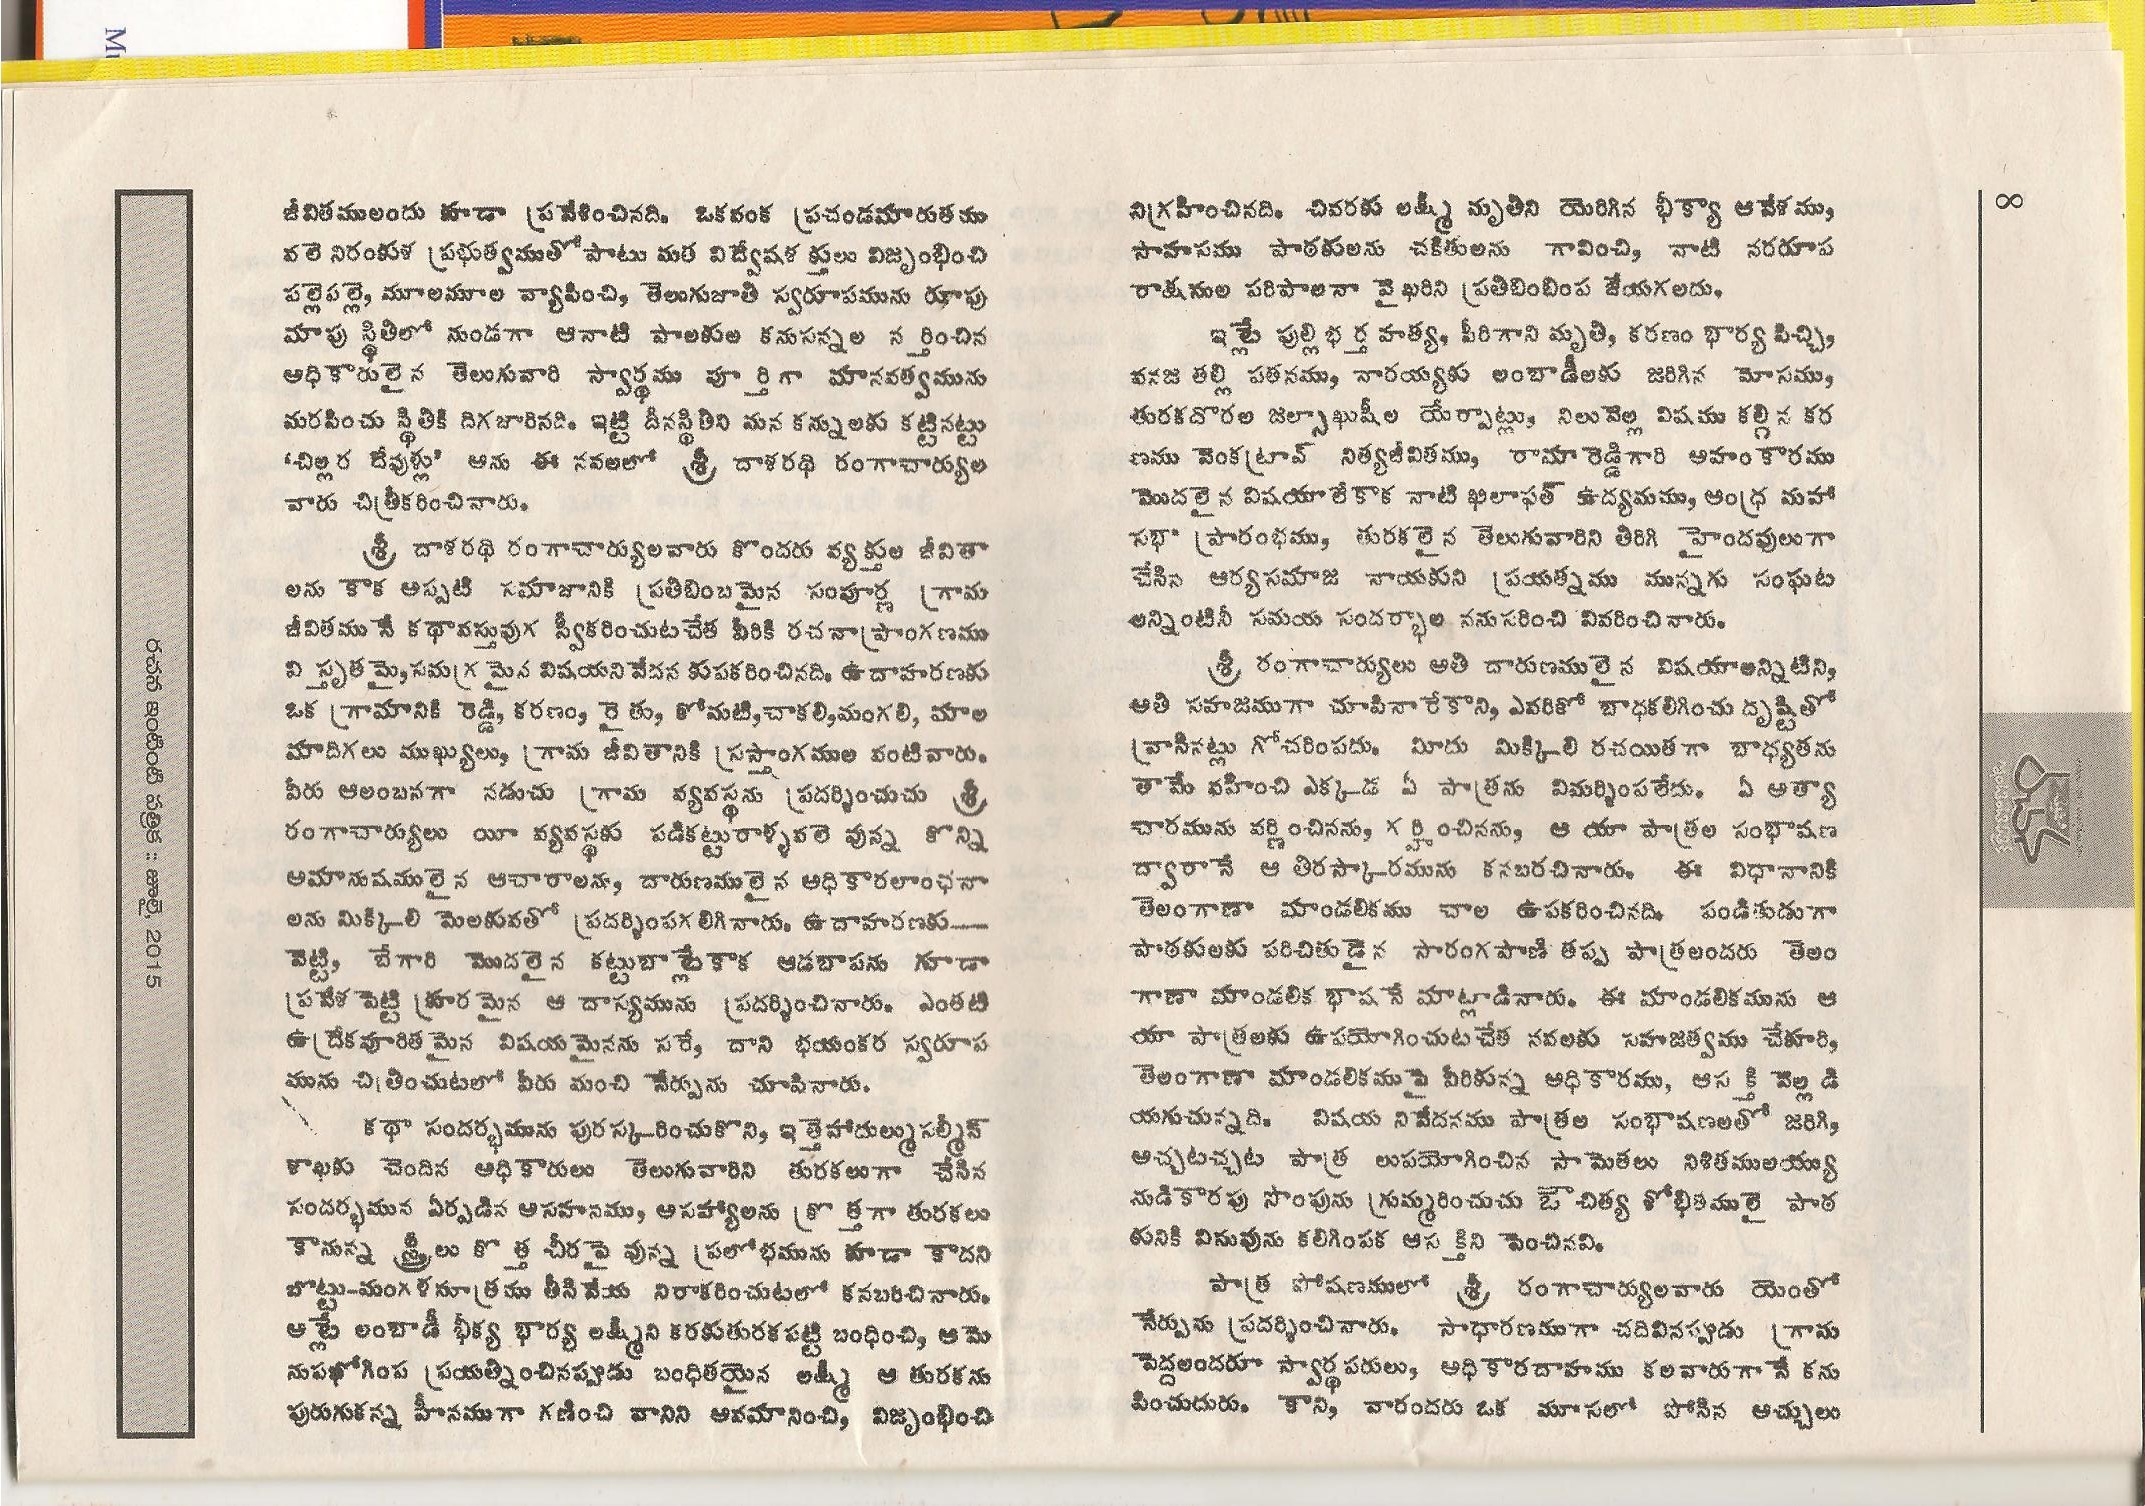 జీవితములందు కూడా ప్రవేశించినది. ఒకవంక ప్రచండమారుతము
వలె నిరంకుశ ప్రభుత్వముతో పాటు మత విద్వేషశక్తులు విజృంభించి
పల్లెపల్లె, మూలమూల వ్యాపించి, తెలుగుజాతి స్వరూపమును రూపు
మాపు స్థితిలో నుండగా ఆనాటి పాలకుల కనుసన్నల నర్తించిన
అధికారులైన తెలుగువారి స్వార్థము పూర్తిగా మానవత్వమును
మరపించు స్థితికి దిగజారినది. ఇట్టి దీనస్థితిని మన కన్నులకు కట్టినట్టు
‘చిల్లర దేవుళ్లు’ అను ఈ నవలలో శ్రీ దాశరథి రంగాచార్యుల
వారు చిత్రీకరించినారు.
శ్రీ దాశరథి రంగాచార్యులవారు కొందరు వ్యక్తుల జీవితా
లను కాక అప్పటి సమాజానికి ప్రతిబింబమైన సంపూర్ణ గ్రామ
జీవితమునే కథావస్తువుగ స్వీకరించుటచేత వీరికి రచనాప్రాంగణము
విస్తృతమై, సమగ్రమైన విషయనివేదన కుపకరించినది. ఉదాహరణకు
ఒక గ్రామానికి రెడ్డి, కరణం, రైతు, కోమటి, చాకలి, మంగలి, మాల
మాదిగలు ముఖ్యులు, గ్రామ జీవితానికి సప్తాంగముల వంటివారు.
వీరు ఆలంబనగా నడుచు గ్రామ వ్యవస్థను ప్రదర్శించుచు శ్రీ
రంగాచార్యులు యీ వ్యవస్థకు పడికట్టురాళ్ళవలె వున్న కొన్ని
అమానుషములైన ఆచారాలను, దారుణములైన అధికారలాంఛనా
లను మిక్కిలి మెలకువతో ప్రదర్శింపగలిగినారు. ఉదాహరణకు—
వెట్టి, బేగారి మొదలైన కట్టుబాట్లేకాక ఆడబాపను గూడా
ప్రవేశపెట్టి క్రూరమైన ఆ దాస్యమును ప్రదర్శించినారు. ఎంతటి
ఉద్రేకపూరితమైన విషయమైనను సరే, దాని భయంకర స్వరూప
మును చిత్రించుటలో వీరు మంచి నేర్పును చూపినారు.
కథా సందర్భమును పురస్కరించుకొని, ఇత్తెహాదుల్ముసల్మీన్
శాఖకు చెందిన అధికారులు తెలుగువారిని తురకలుగా చేసిన
సందర్భమున ఏర్పడిన అసహనము, అసహ్యాలను క్రొత్తగా తురకలు
కానున్న స్త్రీలు కొత్త చీరపై వున్న ప్రలోభమును కూడా కాదని
బొట్టు-మంగళసూత్రము తీసివేయ నిరాకరించుటలో కనబరిచినారు.
అట్లే లంబాడీ భీక్య భార్య లక్ష్మీని కరకుతురకపట్టి బంధించి, ఆమె
నుపభోగింప ప్రయత్నించినప్పుడు బంధితయైన లక్ష్మీ ఆ తురకను
పురుగుకన్న హీనముగా గణించి వానిని అవమానించి, విజృంభించి
నిగ్రహించినది. చివరకు లక్ష్మీ మృతిని యెరిగిన భీక్యా ఆవేశము,
సాహసము పాఠకులను చకితులను గావించి, నాటి నరరూప
రాక్షసుల పరిపాలనా వైఖరిని ప్రతిబింబింప జేయగలదు.
ఇట్లే పుల్లి భర్త హత్య, పీరిగాని మృతి, కరణం భార్య పిచ్చి,
వనజ తల్లి పతనము, నారయ్యకు లంబాడీలకు జరిగిన మోసము,
తురకదొరల జల్సాఖుషీల యేర్పాట్లు, నిలువెల్ల విషము కల్గిన కర
ణము వెంకట్రావ్ నిత్యజీవితము, రామారెడ్డిగారి అహంకారము
మొదలైన విషయాలేకాక నాటి ఖిలాఫత్ ఉద్యమము, ఆంధ్ర మహా
సభా ప్రారంభము, తురకలైన తెలుగువారిని తిరిగి హైందవులుగా
చేసిన ఆర్యసమాజ నాయకుని ప్రయత్నము మున్నగు సంఘట
అన్నింటినీ సమయ సందర్భాల ననుసరించి వివరించినారు.
శ్రీ రంగాచార్యులు అతి దారుణములైన విషయాలన్నిటిని,
అతి సహజముగా చూపినారేకాని, ఎవరికో బాధకలిగించు దృష్టితో
వ్రాసినట్లు గోచరింపదు. మీదు మిక్కిలి రచయితగా బాధ్యతను
తామే వహించి ఎక్కడ ఏ పాత్రను విమర్శింపలేదు. ఏ అత్యా
చారమును వర్ణించినను, గర్హించినను, ఆ యా పాత్రల సంభాషణ
ద్వారానే ఆ తిరస్కారమును కనబరచినారు. ఈ విధానానికి
తెలంగాణా మాండలికము చాల ఉపకరించినది. పండితుడుగా
పాఠకులకు పరిచితుడైన సారంగపాణి తప్ప పాత్రలందరు తెలం
గాణా మాండలిక భాషనే మాట్లాడినారు. ఈ మాండలికమును ఆ
యా పాత్రలకు ఉపయోగించుటచేత నవలకు సహజత్వము చేకూరి,
తెలంగాణా మాండలికముపై వీరికున్న అధికారము, ఆసక్తి వెల్లడి
యగుచున్నది. విషయ నివేదనము పాత్రల సంభాషణలతో జరిగి,
అచ్చటచ్చట పాత్ర లుపయోగించిన సామెతలు నిశితములయ్యు
నుడికారపు సొంపును గ్రుమ్మరించుచు ఔచిత్య శోభితములై పాఠ
కునికి విసువును కలిగింపక ఆసక్తిని పెంచినవి.
పాత్ర పోషణములో శ్రీ రంగాచార్యులవారు యెంతో
నేర్పును ప్రదర్శించినారు. సాధారణముగా చదివినప్పుడు గ్రామ
పెద్దలందరూ స్వార్థపరులు, అధికారదాహము కలవారుగానే కను
పించుదురు. కాని, వారందరు ఒక మూసలో పోసిన అచ్చులు
8
రచన ఇంటింటి పత్రిక :: ఏప్రిల్, 2015
రచన